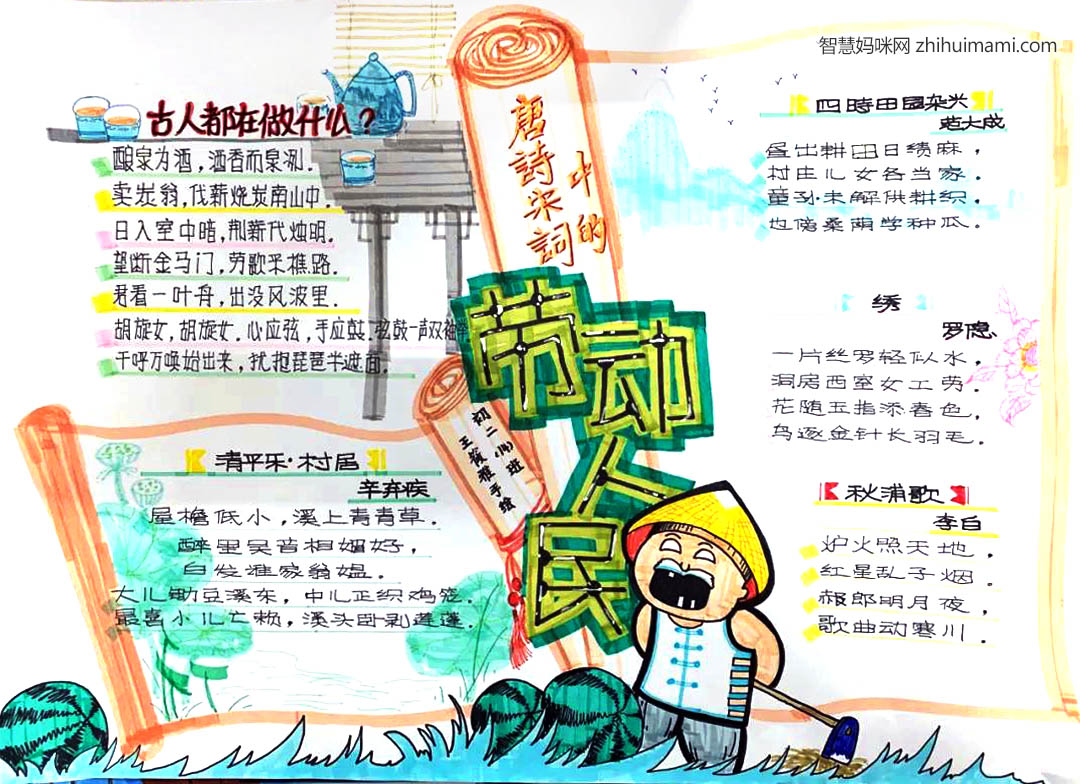 智慧妈咪网 zhihuimami.com
唐詩宋詞
中的
劳动人民
初二(14)班
手绘
古人都在做什么？
酿泉为酒，酒香而泉冽．
卖炭翁，伐薪烧炭南山中．
日入室中暗，荆薪代烛明．
望断金马门，劳歌采樵路．
君看一叶舟，出没风波里．
胡旋女，胡旋女．心应弦，手应鼓．弦鼓一声双袖举
千呼万唤始出来，犹抱琵琶半遮面．
清平乐·村居
辛弃疾
屋檐低小，溪上青青草．
醉里吴音相媚好，
白发谁家翁媪．
大儿锄豆溪东，中儿正织鸡笼．
最喜小儿亡赖，溪头卧剥莲蓬．
四時田园杂兴
范大成
昼出耕田日绩麻，
村庄儿女各当家．
童孙未解供耕织．
也傍桑荫学种瓜．
绣
罗隐
一片丝罗轻似水，
洞房西室女工劳．
花随玉指添春色，
鸟逐金针长羽毛．
秋浦歌
李白
炉火照天地，
红星乱子烟．
赧郎明月夜，
歌曲动寒川．